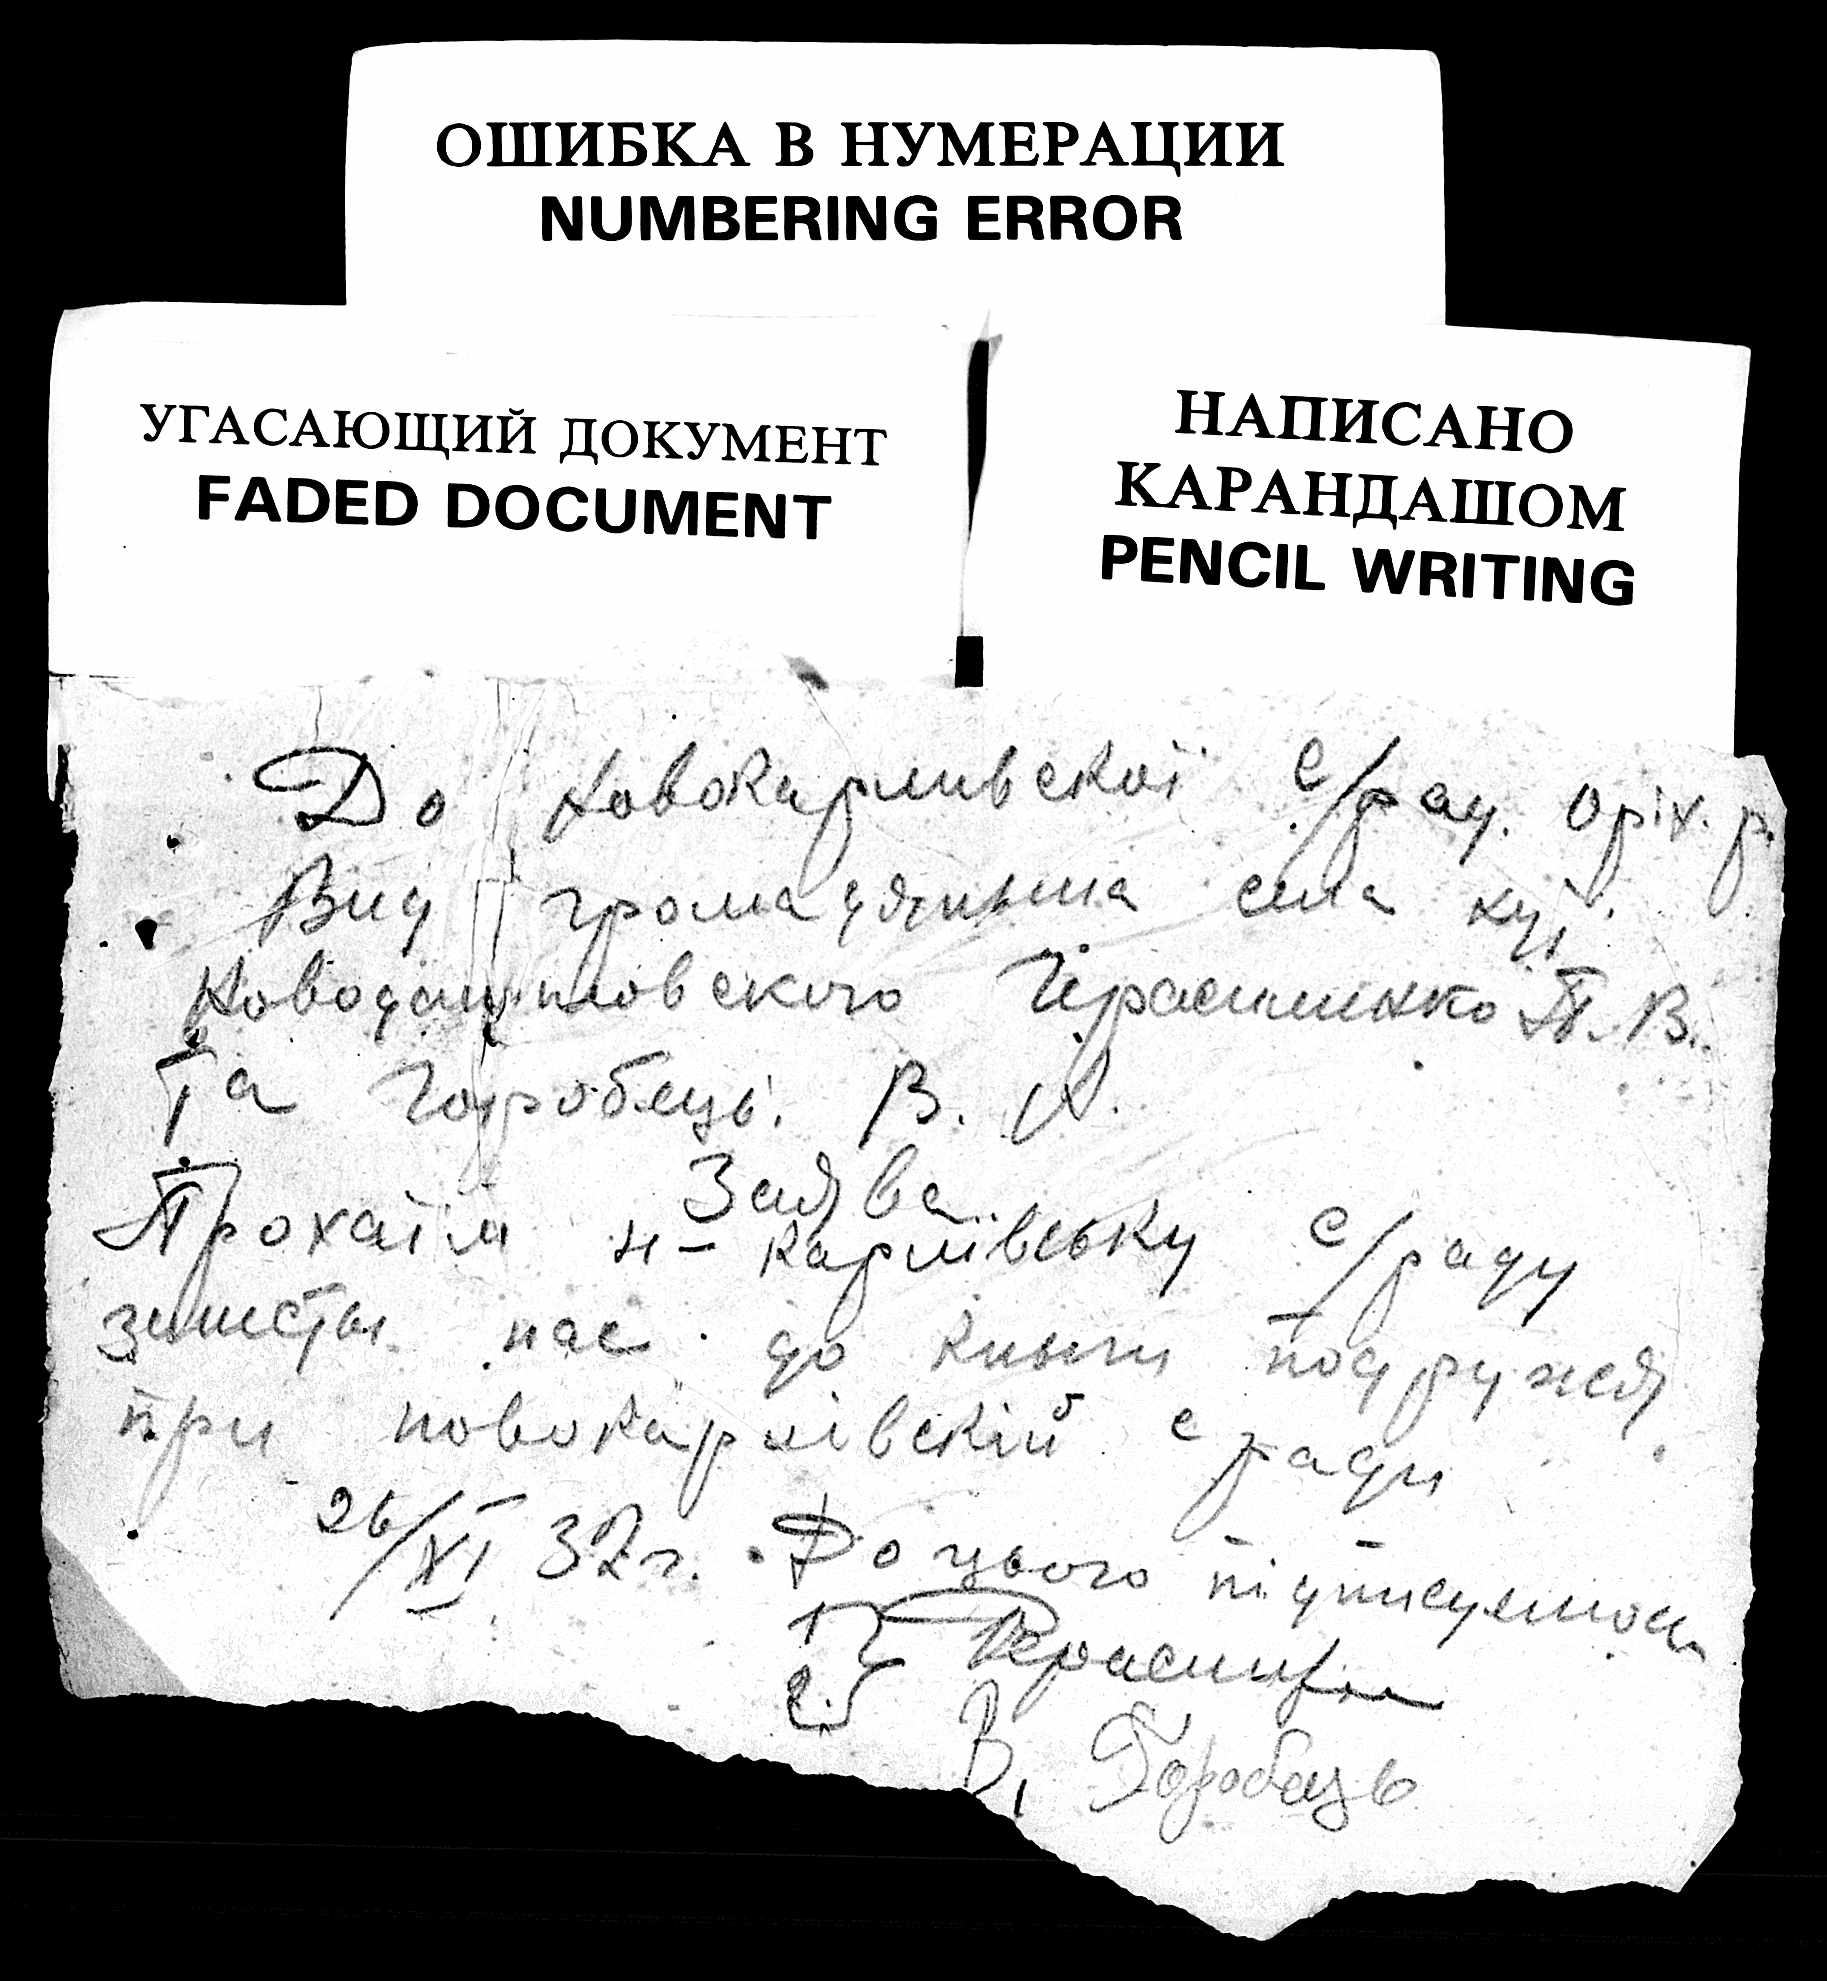 ОШИБКА В НУМЕРАЦИИ
NUMBERING ERROR
УГАСАЮЩИЙ ДОКУМЕНТ
FADED DOCUMENT
НАПИСАНО
КАРАНДАШОМ
PENCIL WRITING
До Новокарливскої с/рад. Оріх. р.
Вид громадянына села
Новоданиловского Герасименко П. В.
Та Горобець. В.
Заява
Прохаїм Н-карлівську с/раду
занисты нас до кныги подружжя
при новокарлівскій с ради
26/XI 32 г. До цього підписуемось
1)
2) В. Горобець